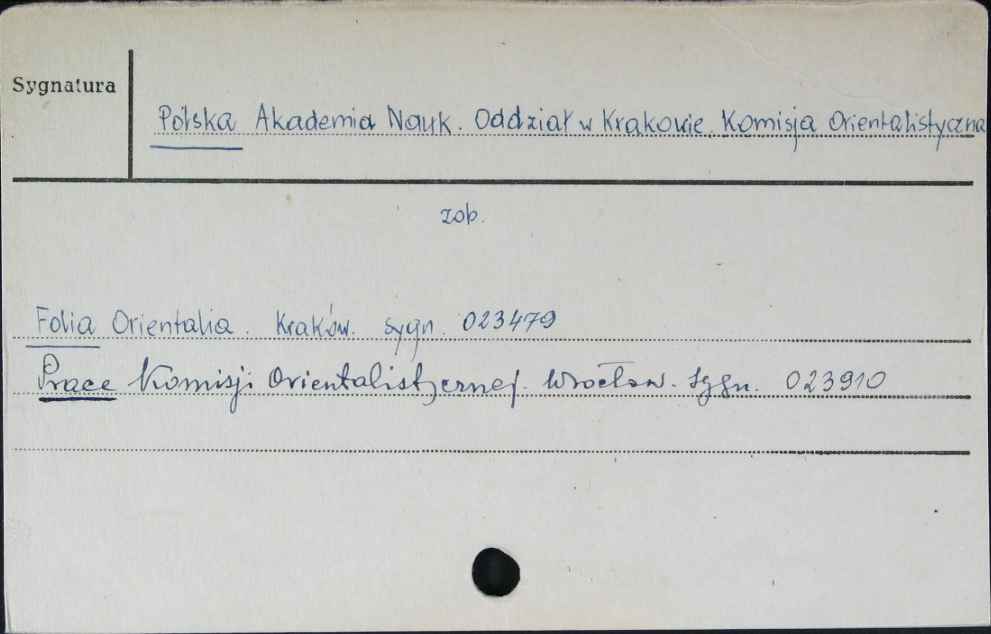 Sygnatura
Polska Akademia Nauk. Oddział w Krakowie. Komisja Orientalistyczna
zob.
Folia Orientalia. Kraków. sygn. 023479
Prace Komisji Orientalistycznej. Wrocław. Sygn. 023910